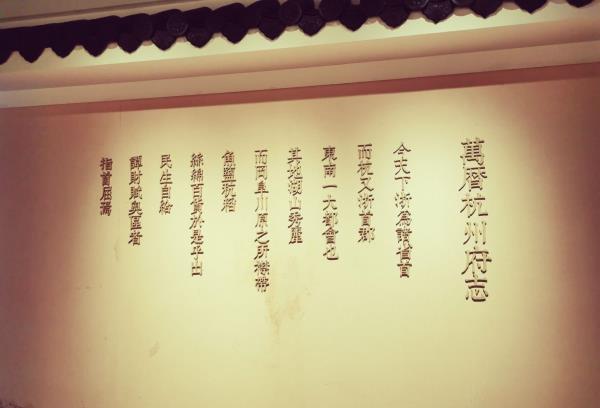 萬曆杭州府志
今天下浙爲諸省首
而杭又浙首郡
東南一大都會也
其地湖山秀麗
而岡阜川原之所襟帶
魚鹽秔稻
絲綿百貨於是乎出
民生自給
譚財賦奧區者
指首屈焉